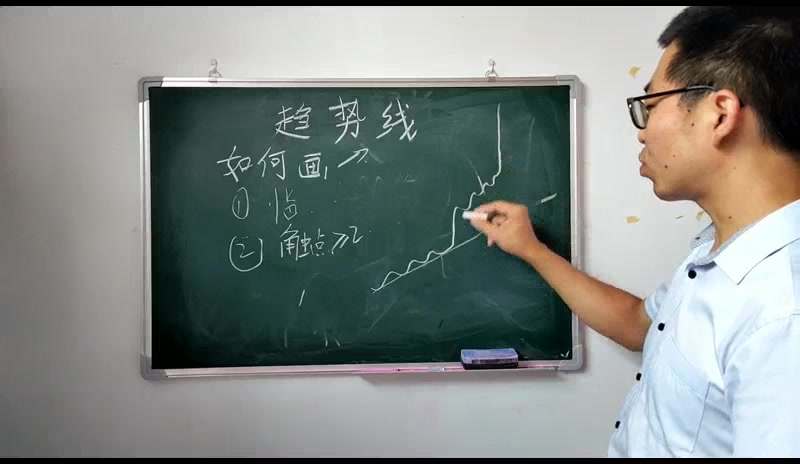 趋势线
如何画
① 临
② 触点≥2